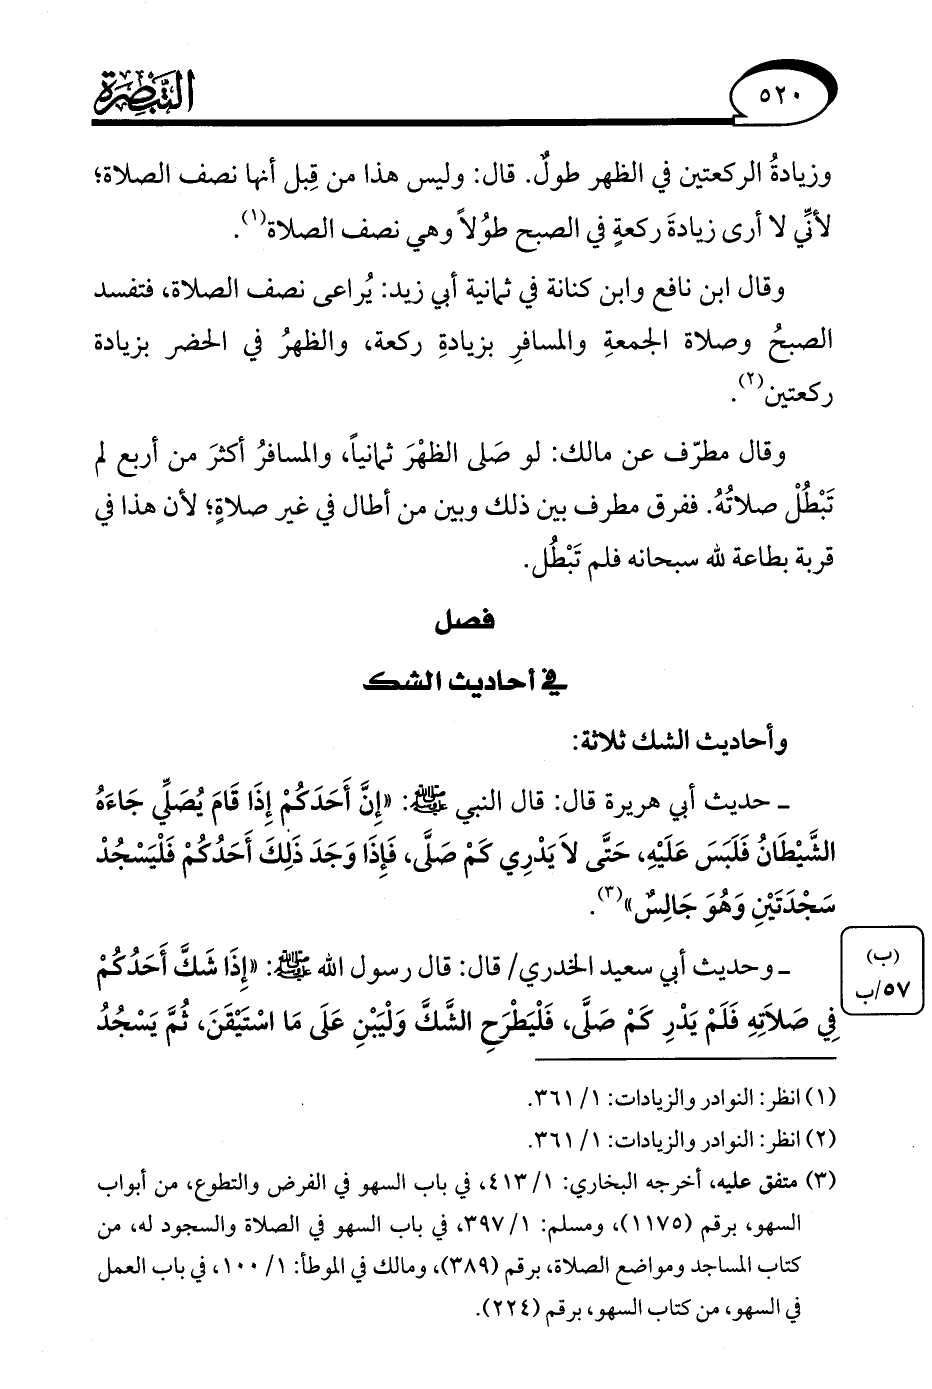 التبصرة
٥٢٠
وزيادةُ الركعتين في الظهر طولٌ. قال: وليس هذا من قِبل أنها نصف الصلاة؛
لأنِّي لا أرى زيادةَ ركعةٍ في الصبح طوُلاً وهي نصف الصلاة(١).
وقال ابن نافع وابن كنانة في ثمانية أبي زيد: يُراعى نصف الصلاة، فتفسد
الصبحُ وصلاة الجمعةِ والمسافرِ بزيادةِ ركعة، والظهرُ في الحضر بزيادة
ركعتين(٢).
وقال مطرّف عن مالك: لو صَلى الظهْرَ ثمانياً، والمسافرُ أكثرَ من أربع لم
تَبْطُلْ صلاتُهُ. ففرق مطرف بين ذلك وبين من أطال في غير صلاةٍ؛ لأن هذا في
قربة بطاعة لله سبحانه فلم تَبْطُل.
فصل
في أحاديث الشك
وأحاديث الشك ثلاثة:
ـ حديث أبي هريرة قال: قال النبي ﷺ: «إِنَّ أَحَدَكُمْ إِذَا قَامَ يُصَلِّي جَاءَهُ
الشَّيْطَانُ فَلَبَسَ عَلَيْهِ، حَتَّى لاَ يَدْرِي كَمْ صَلَّى، فَإِذَا وَجَدَ ذَلِكَ أَحَدُكُمْ فَلْيَسْجُدْ
سَجْدَتَيْنِ وَهُوَ جَالِسٌ»(٣).
ـ وحديث أبي سعيد الخدري/ قال: قال رسول الله ﷺ: «إِذَا شَكَّ أَحَدُكُمْ
(ب)
٥٧/ب
فِي صَلاَتِهِ فَلَمْ يَدْرِ كَمْ صَلَّى، فَلْيَطْرَحِ الشَّكَّ وَلْيَبْنِ عَلَى مَا اسْتَيْقَنَ، ثُمَّ يَسْجُدُ
(١) انظر: النوادر والزيادات: ١/ ٣٦١.
(٢) انظر: النوادر والزيادات: ١/ ٣٦١.
(٣) متفق عليه، أخرجه البخاري: ١/ ٤١٣، في باب السهو في الفرض والتطوع، من أبواب
السهو، برقم (١١٧٥)، ومسلم: ١/ ٣٩٧، في باب السهو في الصلاة والسجود له، من
كتاب المساجد ومواضع الصلاة، برقم (٣٨٩)، ومالك في الموطأ: ١/ ١٠٠، في باب العمل
في السهو، من كتاب السهو، برقم (٢٢٤).